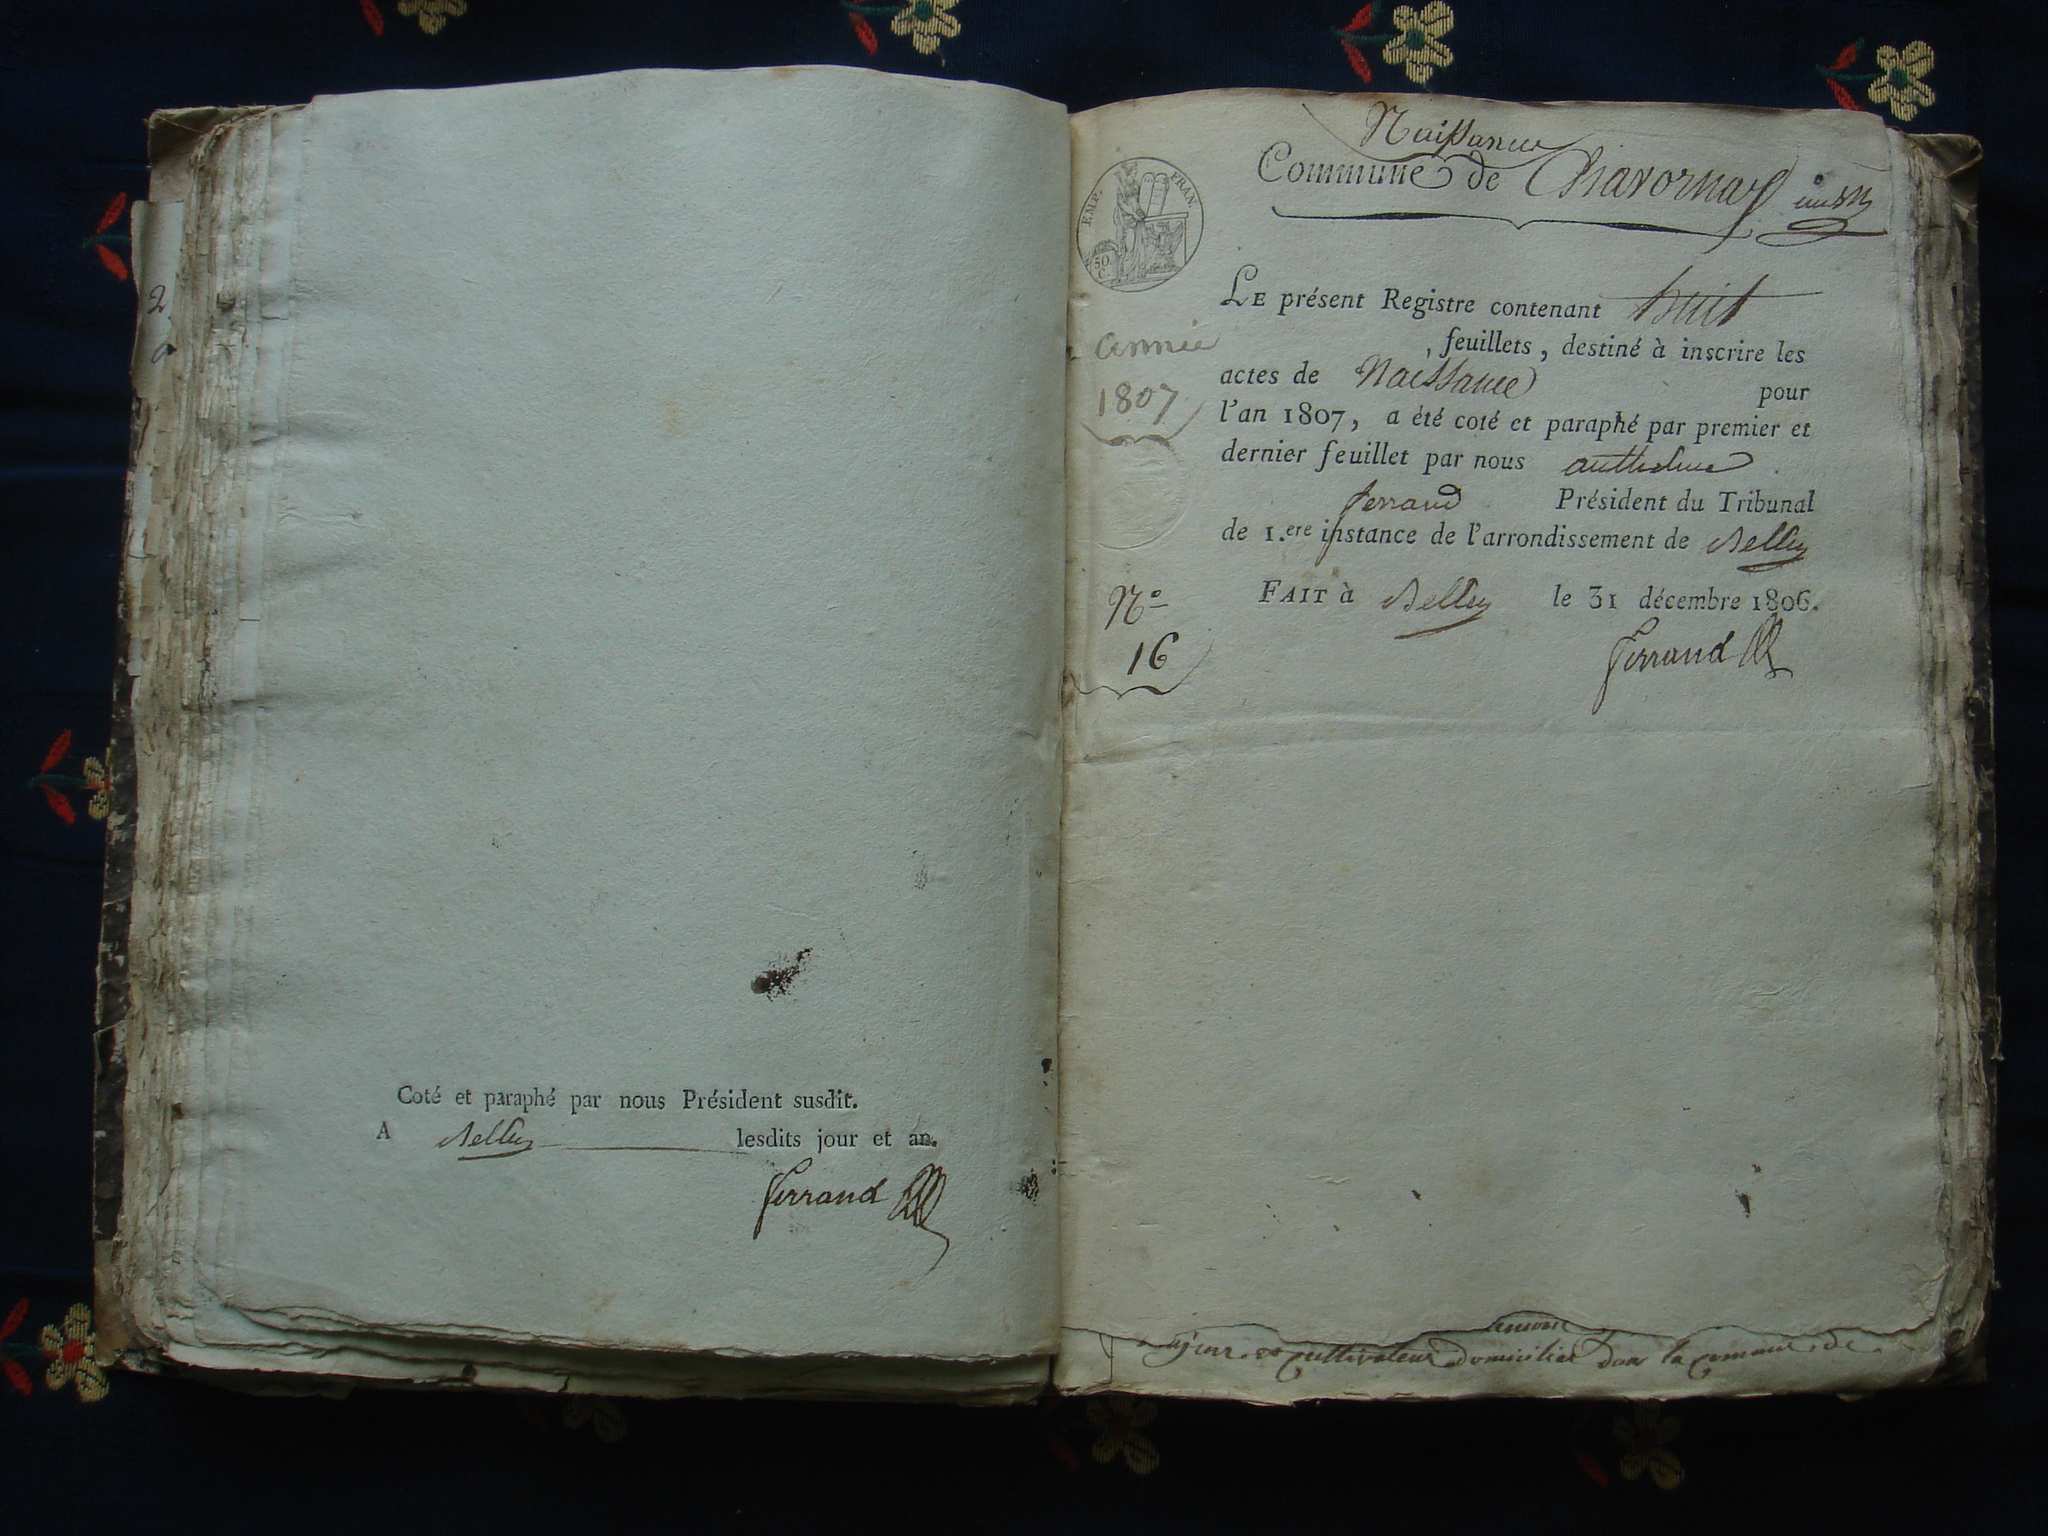 2
Coté et paraphé par nous Président susdit.
A Belley lesdits jour et an.
Ferrand
Naissance
Commune de Chavornay
EMP. FRAN.
50 C.
LE présent Registre contenant huit
feuillets, destiné à inscrire les
actes de Naissance pour
l'an 1807, a été coté et paraphé par premier et
dernier feuillet par nous anthelme
ferrand Président du Tribunal
de 1.ere instance de l'arrondissement de Belley
FAIT à Belley le 31 décembre 1806.
Ferrand
année
1807
N°
16
cultivateur domicilié dans la commune de